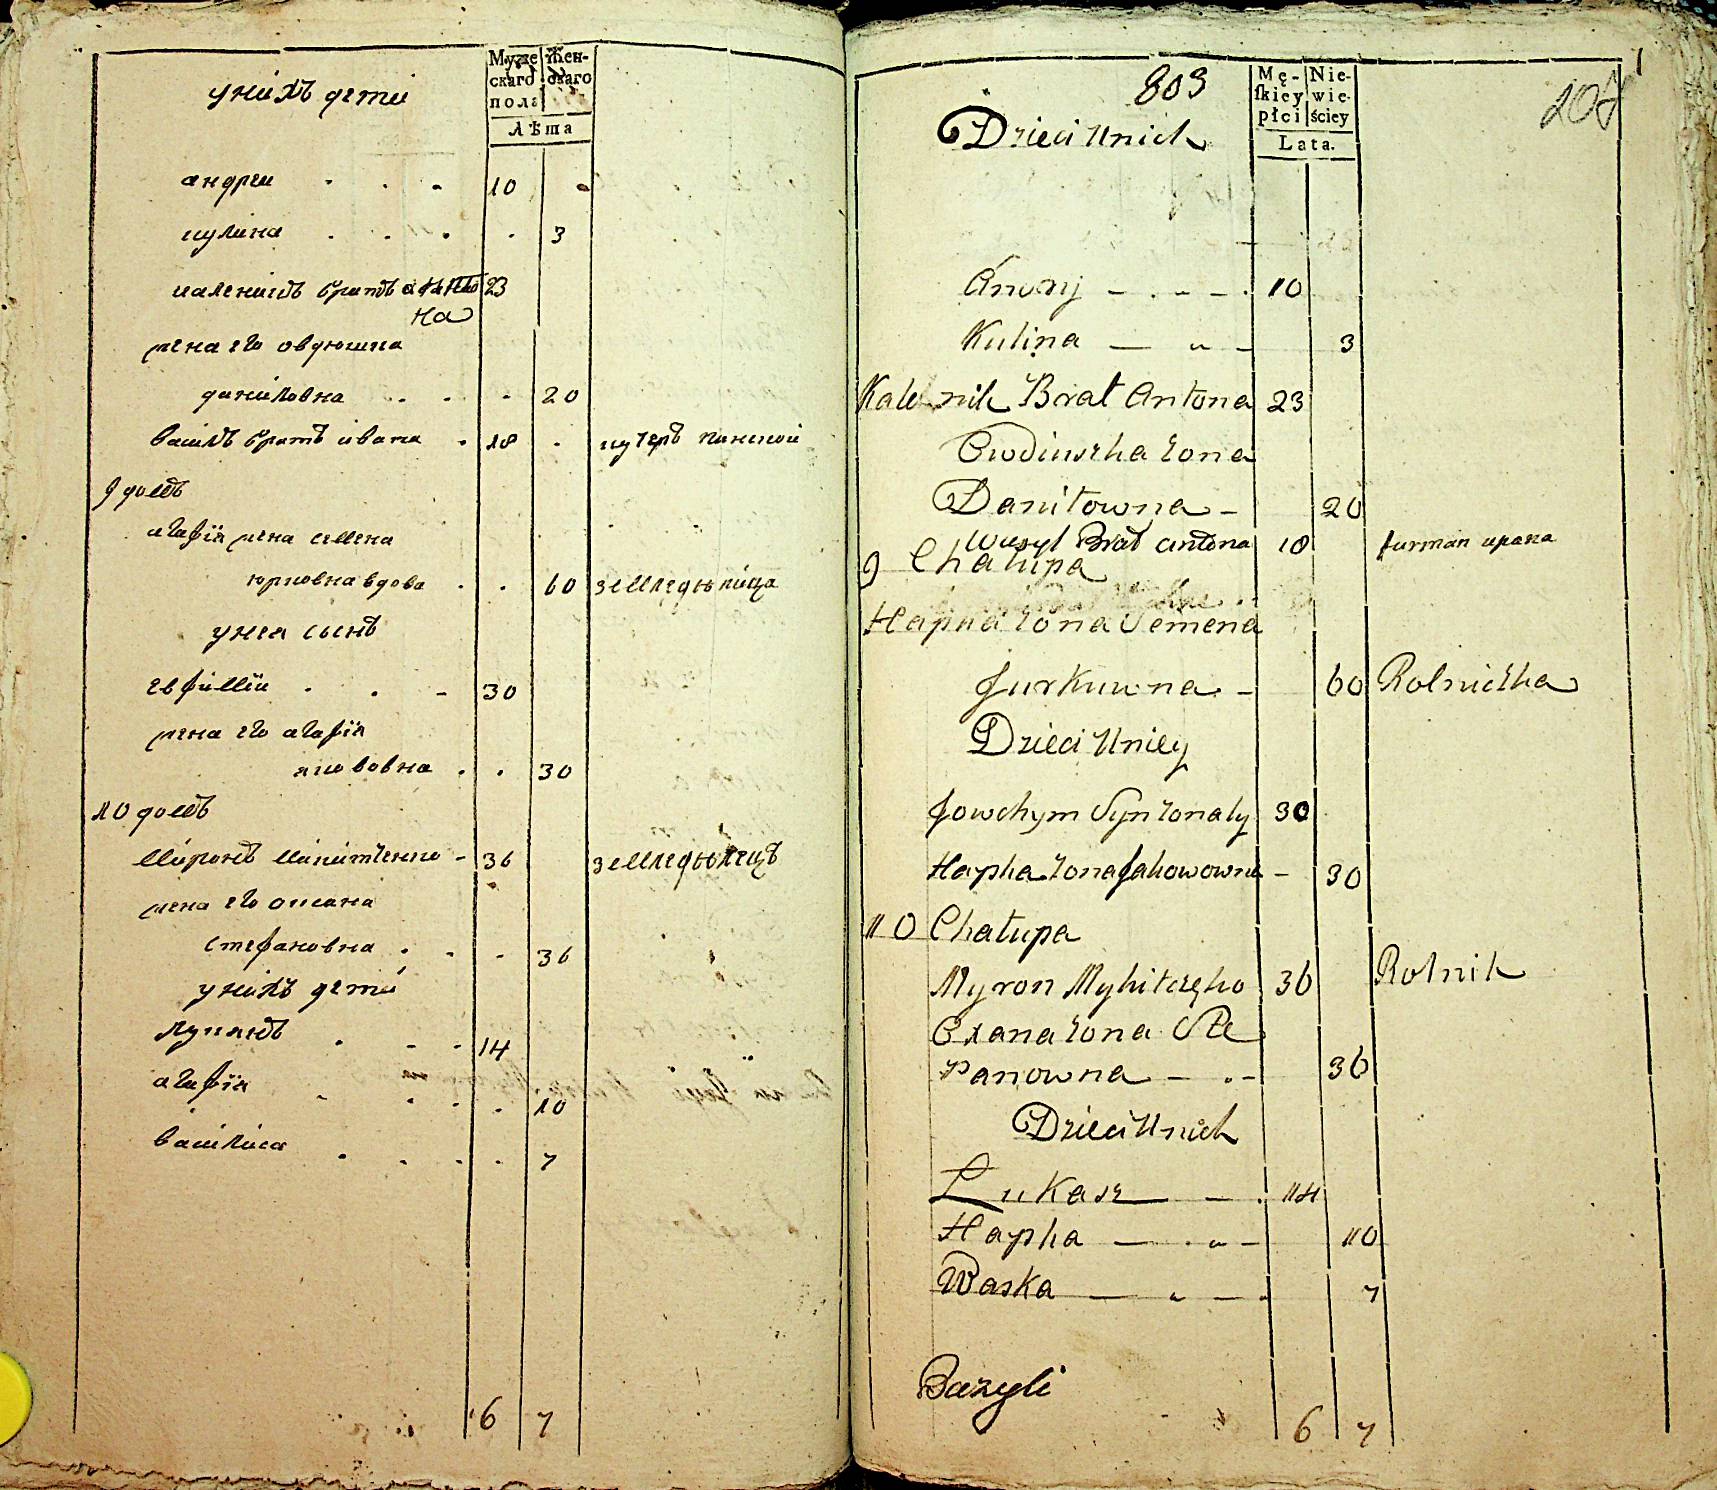 унихъ дети
Муже скаго пола
Жен скаго
Лѣта
андреи . . . 10
кулина . . . . 3
каленикъ братъ анто 23
на
жена его овдюшка
даниловна . . . 20
василь братъ ивана . 18 . кучеръ панской
9 домъ
агафїя жена семена
юрковна вдова . . 60 земледѣлица
унея сынъ
евфимїи . . - 30
жена его агафїя
якововна . . 30
10 домъ
миронъ микитченко - 36 земледѣлецъ
жена его оксана
стефановна . . - 36
унихъ дети
лукянъ . - - 14
агафїя - . . . 10
василиса . . . . 7
6 7
803
Dzieci Unich
Mę- skiey płci
Nie- wie- ściey
Lata.
Andrzij 10
Kulina 3
Kalenik Brat Antona 23
Owdiuszka żona
Daniłowna - 20
Wasyl Brat Antona 18 furman upana
9 Chałupa
Hapka żona Semena
Jurkuwna - 60 Rolniczka
Dzieci Uniey
Jowchym Syn żonaty 30
Hapka żona Jakowowna - 30
10 Chałupa
Myron Mykitczęko 36 Rolnik
Oxana żona Ste
panowna 36
Dzieci Unich
Łukasz 14
Hapka 10
Waska 7
Bazyli
6 7